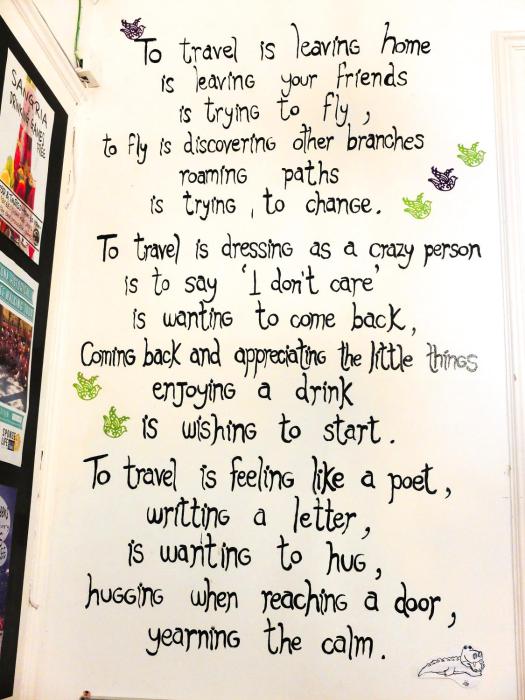 To travel is leaving home
is leaving your friends
is trying to fly,
to fly is discovering other branches
roaming paths
is trying, to change.
To travel is dressing as a crazy person
is to say 'I don't care'
is wanting to come back,
Coming back and appreciating the little things
enjoying a drink
is wishing to start.
To travel is feeling like a poet,
writting a letter,
is wanting to hug,
hugging when reaching a door,
yearning the calm.
SANGRIA